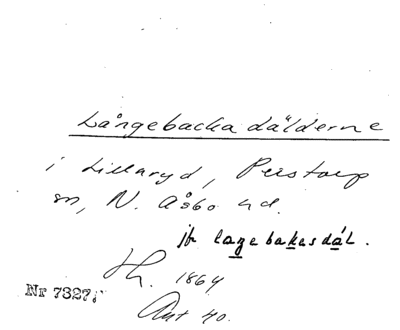 Långebacka dälderne
i Lillaryd, Perstorp
sn, N. Åsbo hd.
jfr lagebakesdál.
Th. 1864
Nr 7327,
Ant 40.